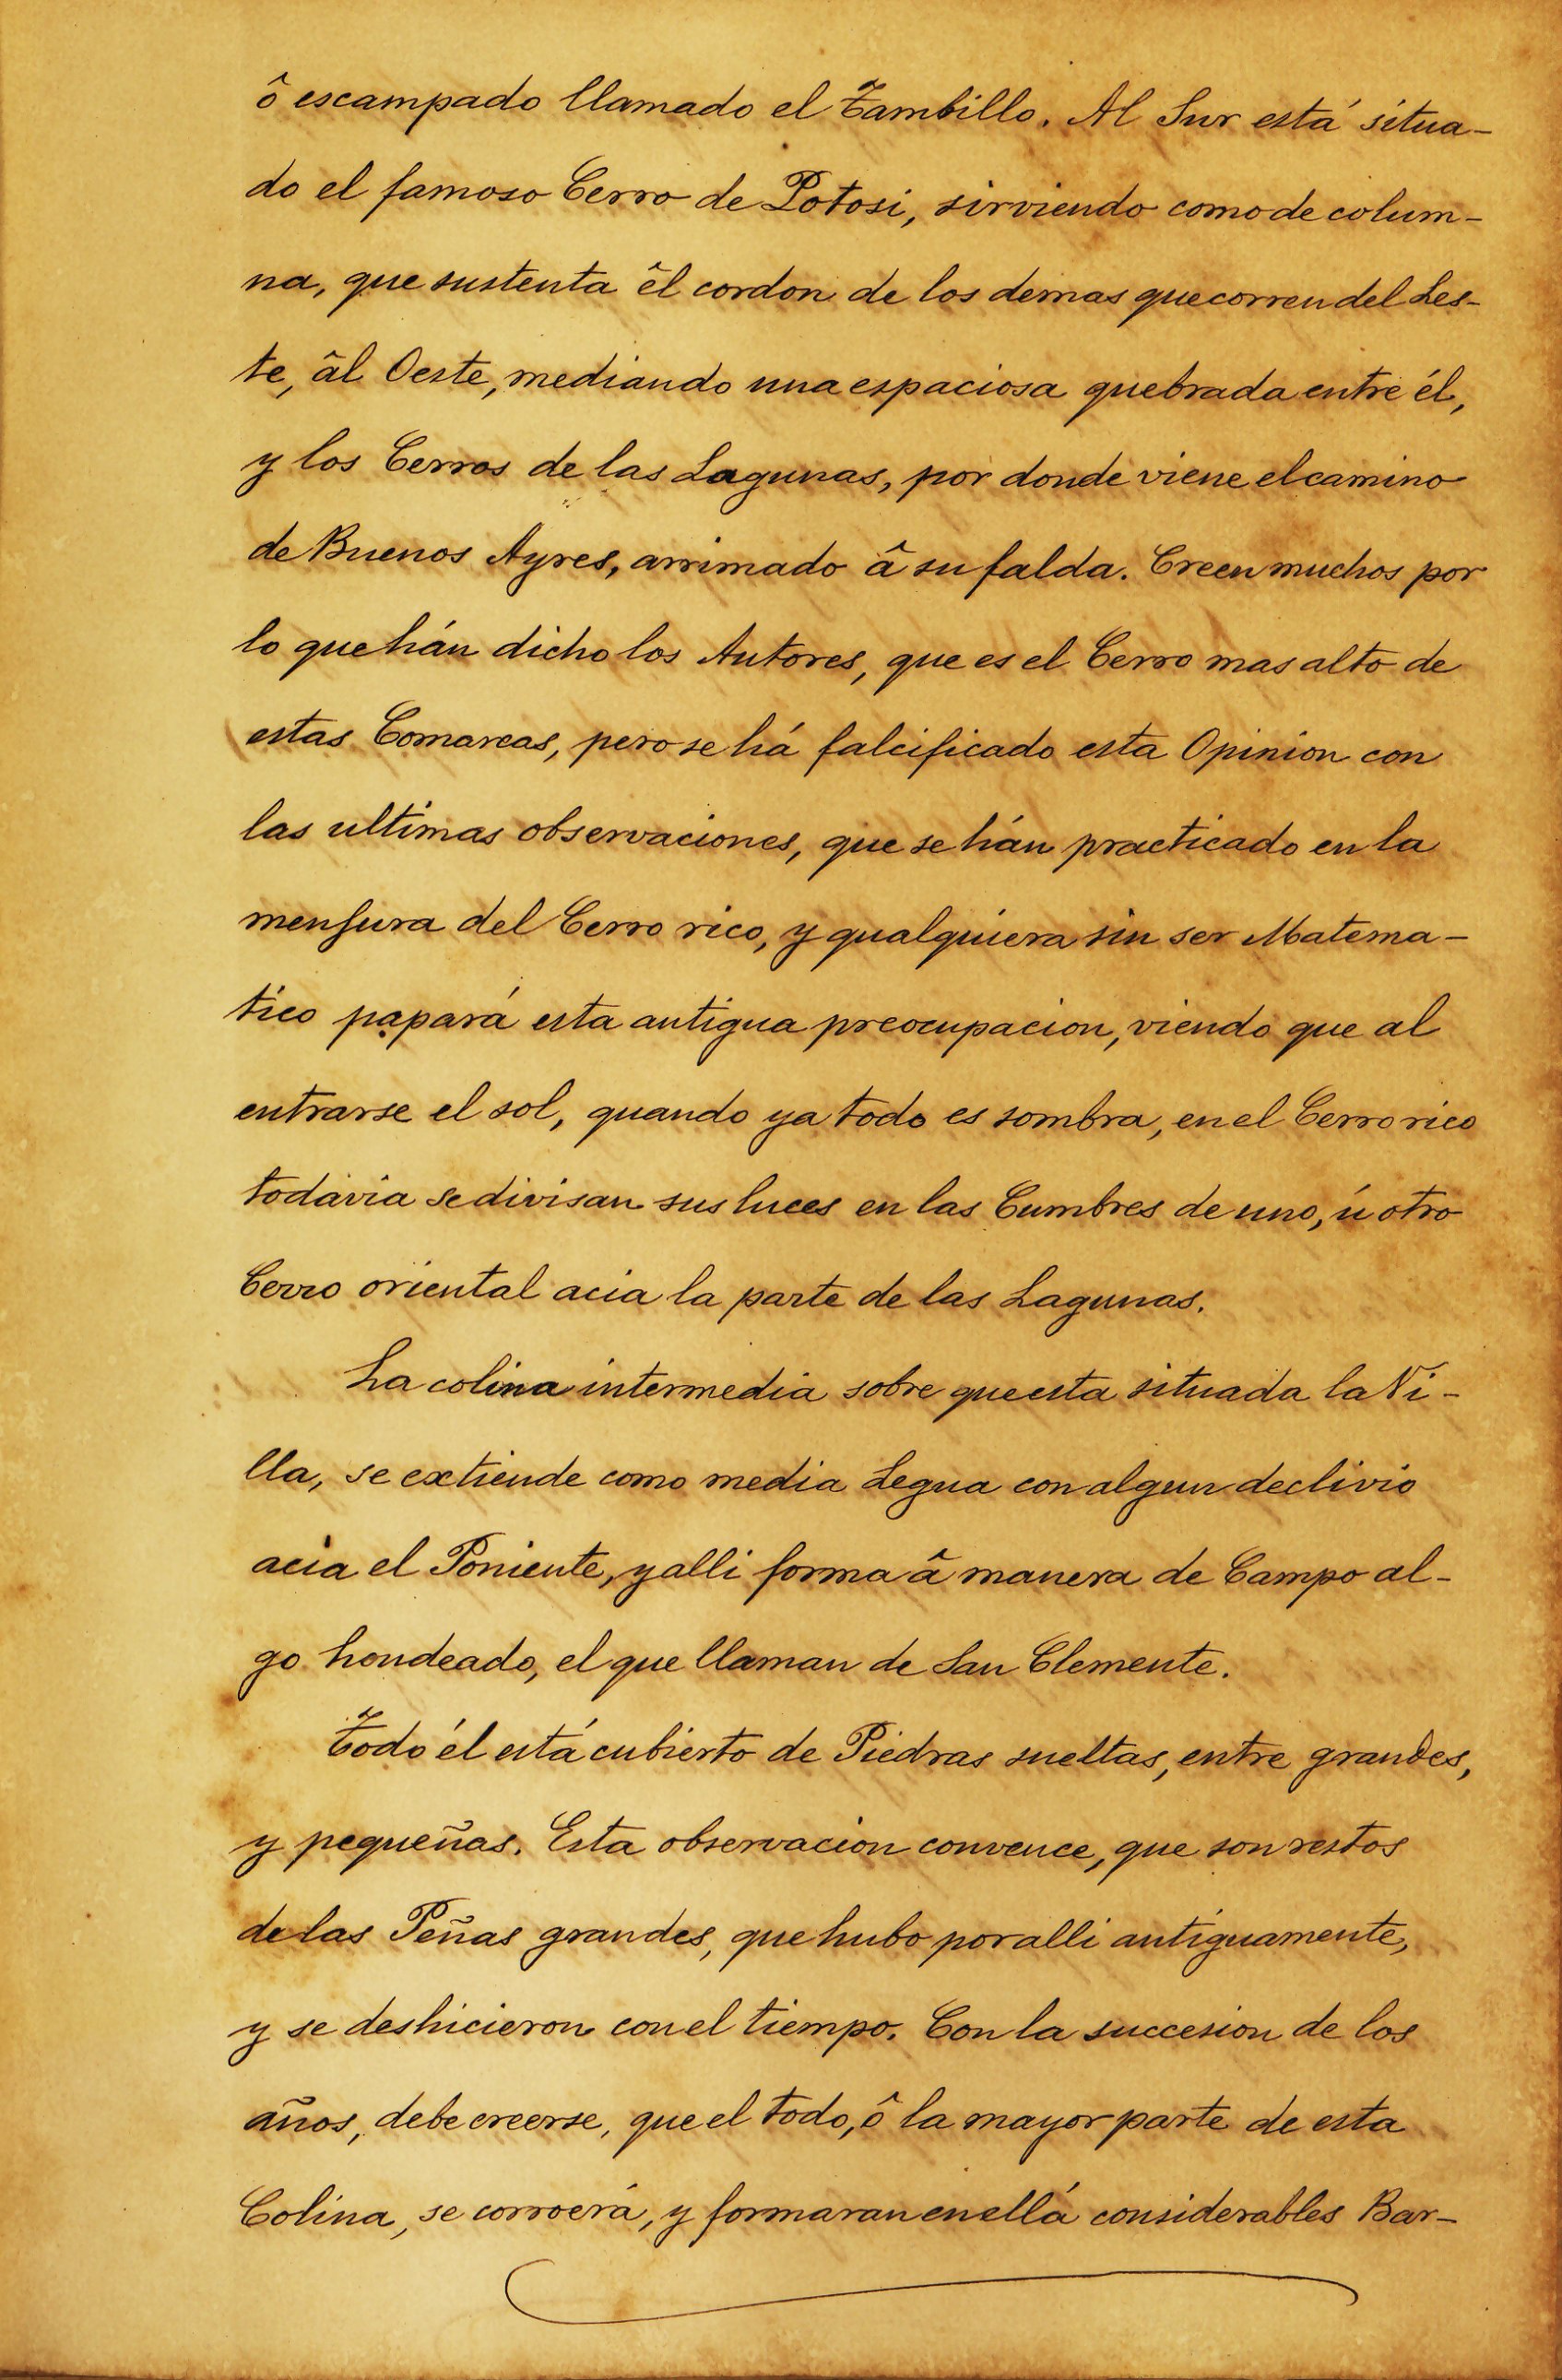 ô escampado llamado el Tambillo. Al Sur está situa-
do el famoso Cerro de Potosi, sirviendo como de colum-
na, que sustenta êl cordon de los demas que corren del Les-
te, âl Oeste, mediando una espaciosa quebrada entre él,
y los Cerros de las Lagunas, por donde viene el camino
de Buenos Ayres, arrimado â su falda. Creen muchos por
lo que hán dicho los Autores, que es el Cerro mas alto de
estas Comarcas, pero se há falcificado esta Opinion con
las ultimas observaciones, que se hán practicado en la
mensura del Cerro rico, y qualquiera sin ser Matema-
tico papará esta antigua preocupacion, viendo que al
entrarse el sol, quando ya todo es sombra, en el Cerro rico
todavia se divisan sus luces en las Cumbres de uno, ú otro
Cerro oriental acia la parte de las Lagunas.
La colina intermedia sobre que esta situada la Vi-
lla, se extiende como media Legua con algun declivio
acia el Poniente, y alli forma â manera de Campo al-
go hondeado, el que llaman de San Clemente.
Todo él está cubierto de Piedras sueltas, entre grandes,
y pequeñas. Esta observacion convence, que son restos
de las Peñas grandes, que hubo por alli antiguamente,
y se deshicieron con el tiempo. Con la succesion de los
años, debe creerse, que el todo, ô la mayor parte de esta
Colina, se corroerá, y formaran en ellá considerables Bar-